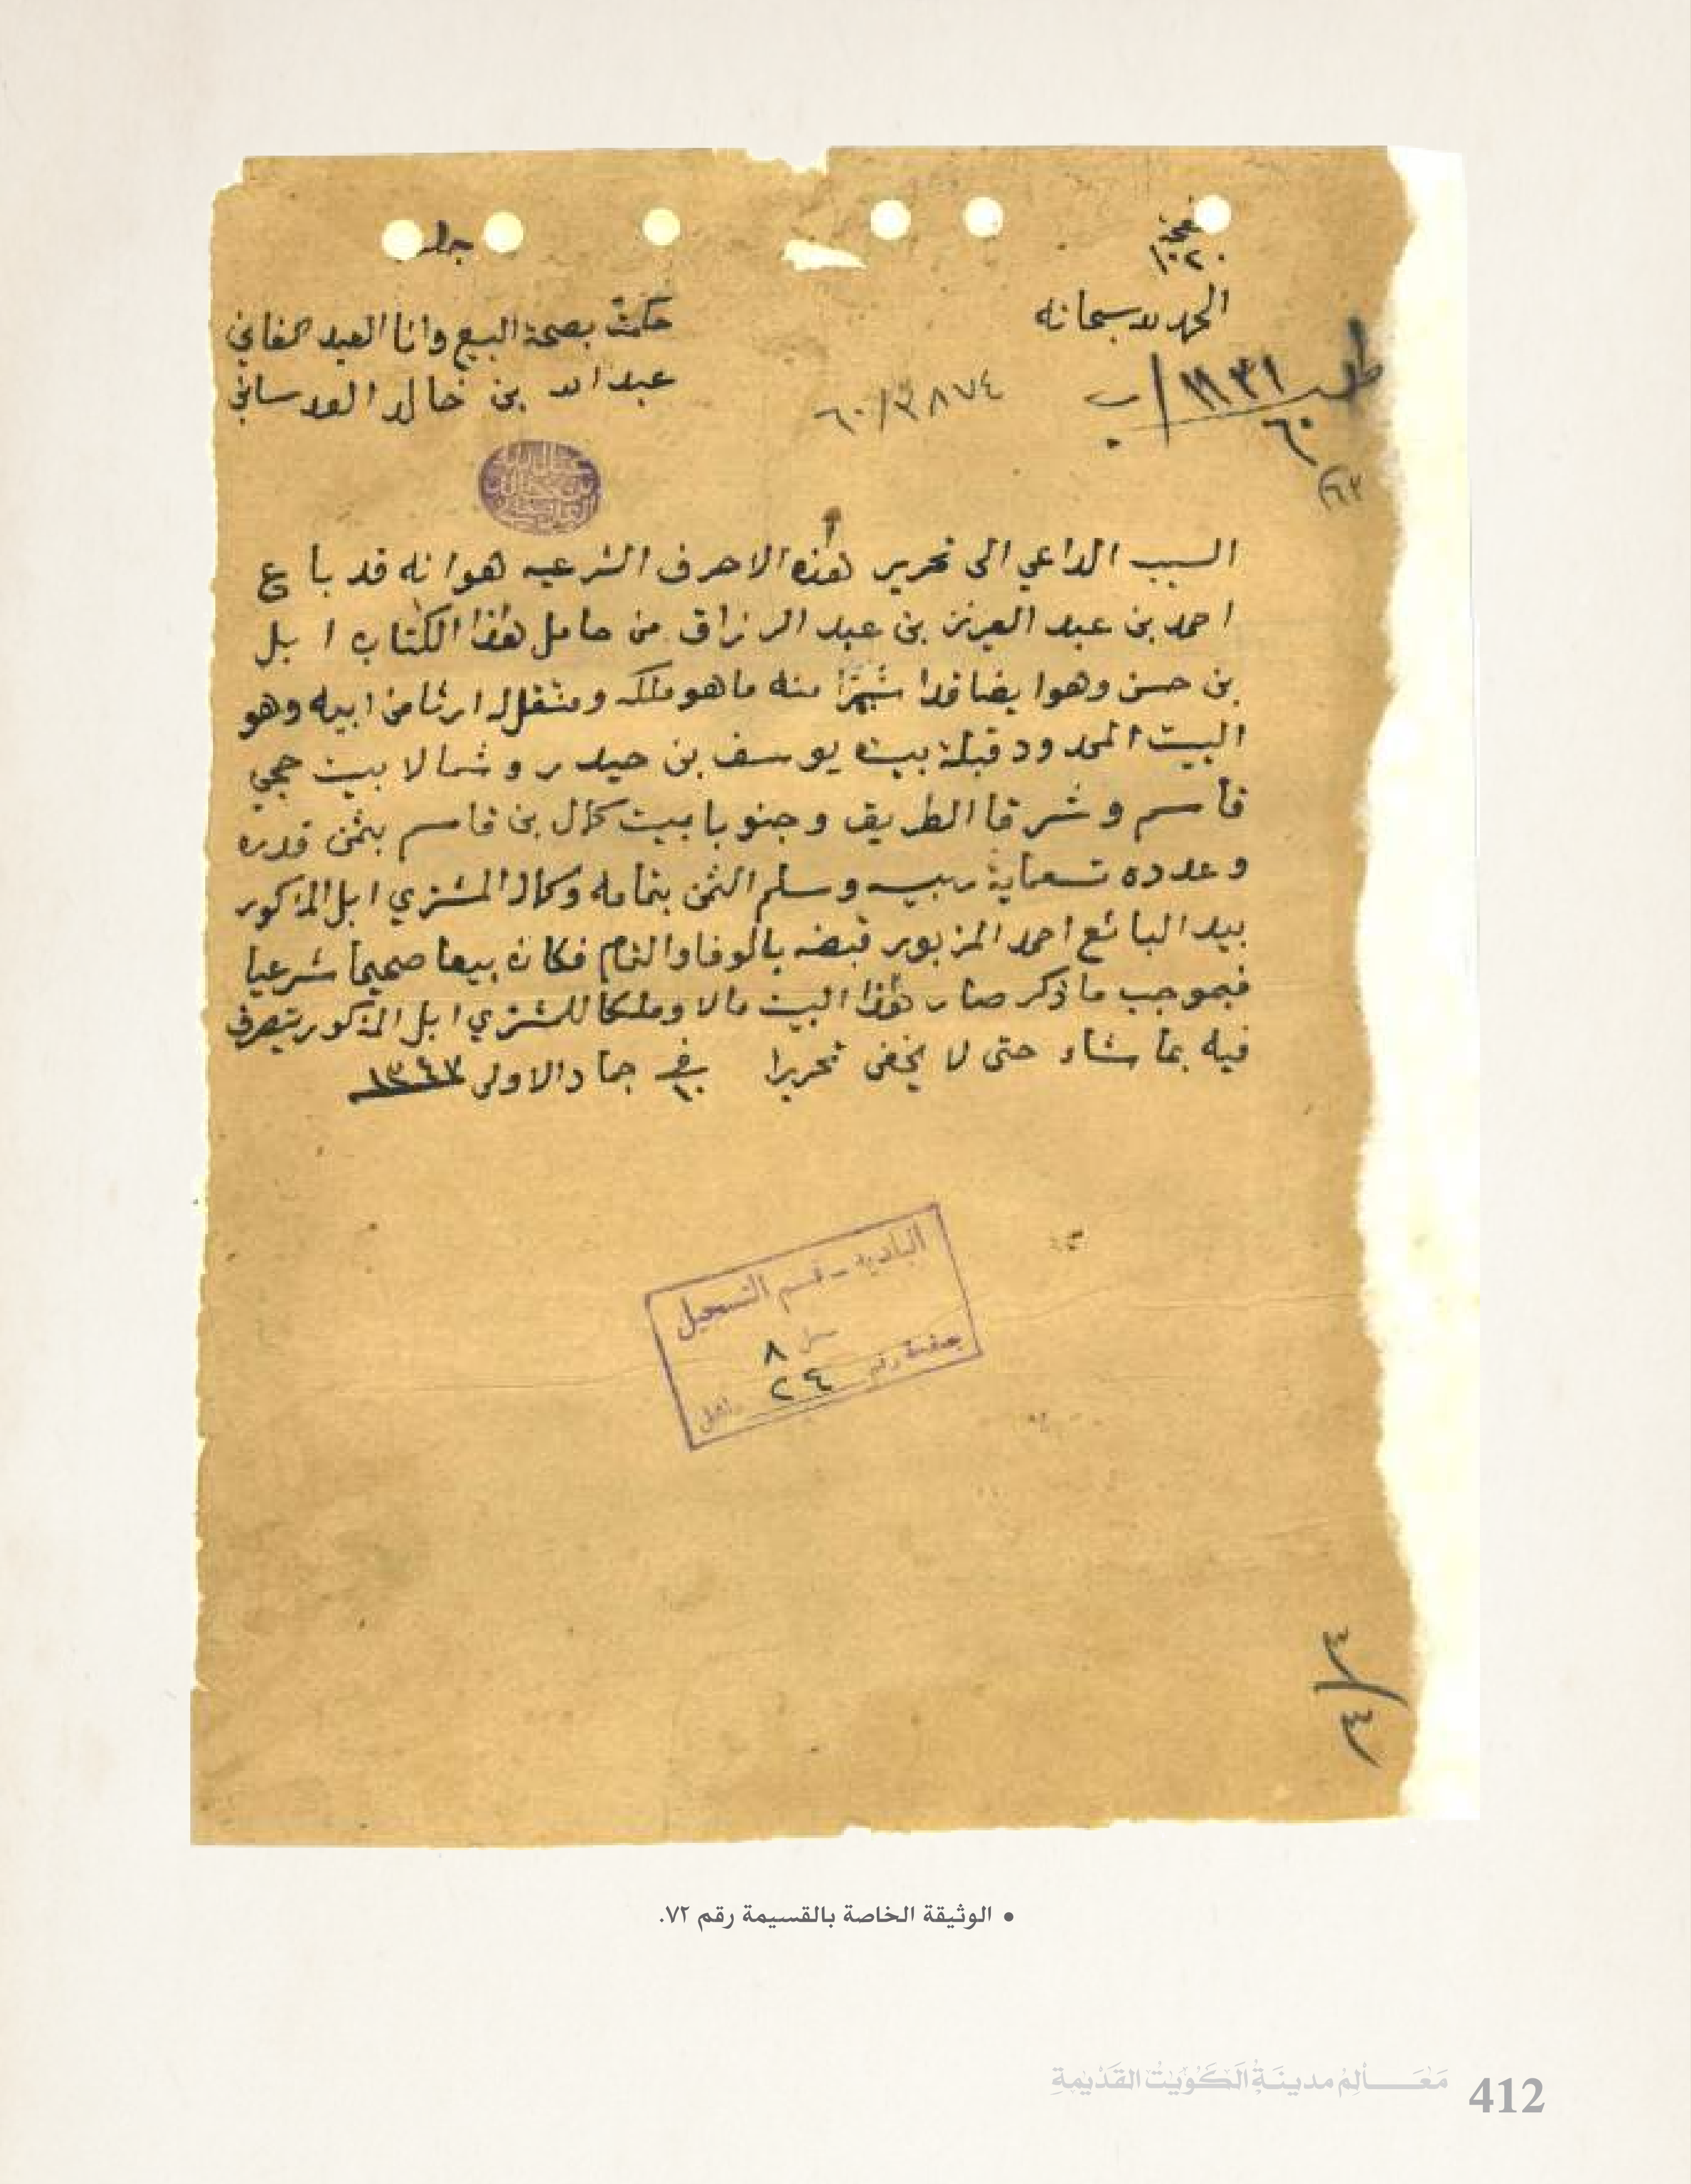 صفحة
١٠٢٠
جلد
الحمد لله سبحانه
حكمت بصحة البيع وانا العبد الفاني
عبد الله بن خالد العدساني
طلب ١١٣١/ب
٦٠
٦٠/٣٨٧٤
السبب الداعي الى تحرير هذه الاحرف الشرعيه هو انه قد باع
احمد بن عبد العزيز بن عبد الرزاق من حامل هذا الكتاب ابل
بن حسن وهوا ايضا قد اشترا منه ما هو ملكه ومنتقل له ارثا من ابيه وهو
البيت المحدود قبلة بيت يوسف بن حيدر وشمالا بيت حجي
قاسم وشرقا الطريق وجنوبا بيت كمال بن قاسم بثمن قدره
وعدده تسعماية ربيه وسلم الثمن بتمامه وكماله المشتري ابل المذكور
بيد البائع احمد المزبور قبضه بالوفا والتمام فكان بيعا صحيحا شرعيا
فبموجب ما ذكر صار هذا البيت مالا وملكا للمشتري ابل المذكور يتصرف
فيه بما شاء حتى لا يخفى تحريرا في ١٠ جماد الاولى ١٣٤٣
البلدية - قسم التسجيل
سجل ٨
صفحة رقم ٢٤
• الوثيقة الخاصة بالقسيمة رقم ٧٢.
مَعَالِمُ مدينَةِ الكُوَيْتْ القَدْيمَةِ 412